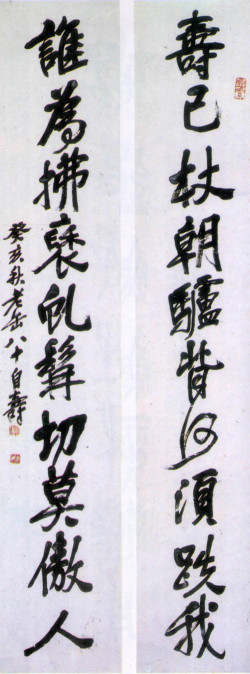 壽已杖朝驢背何須跌我
誰為拂虬髯切莫傲人
癸亥秋老缶八十自壽